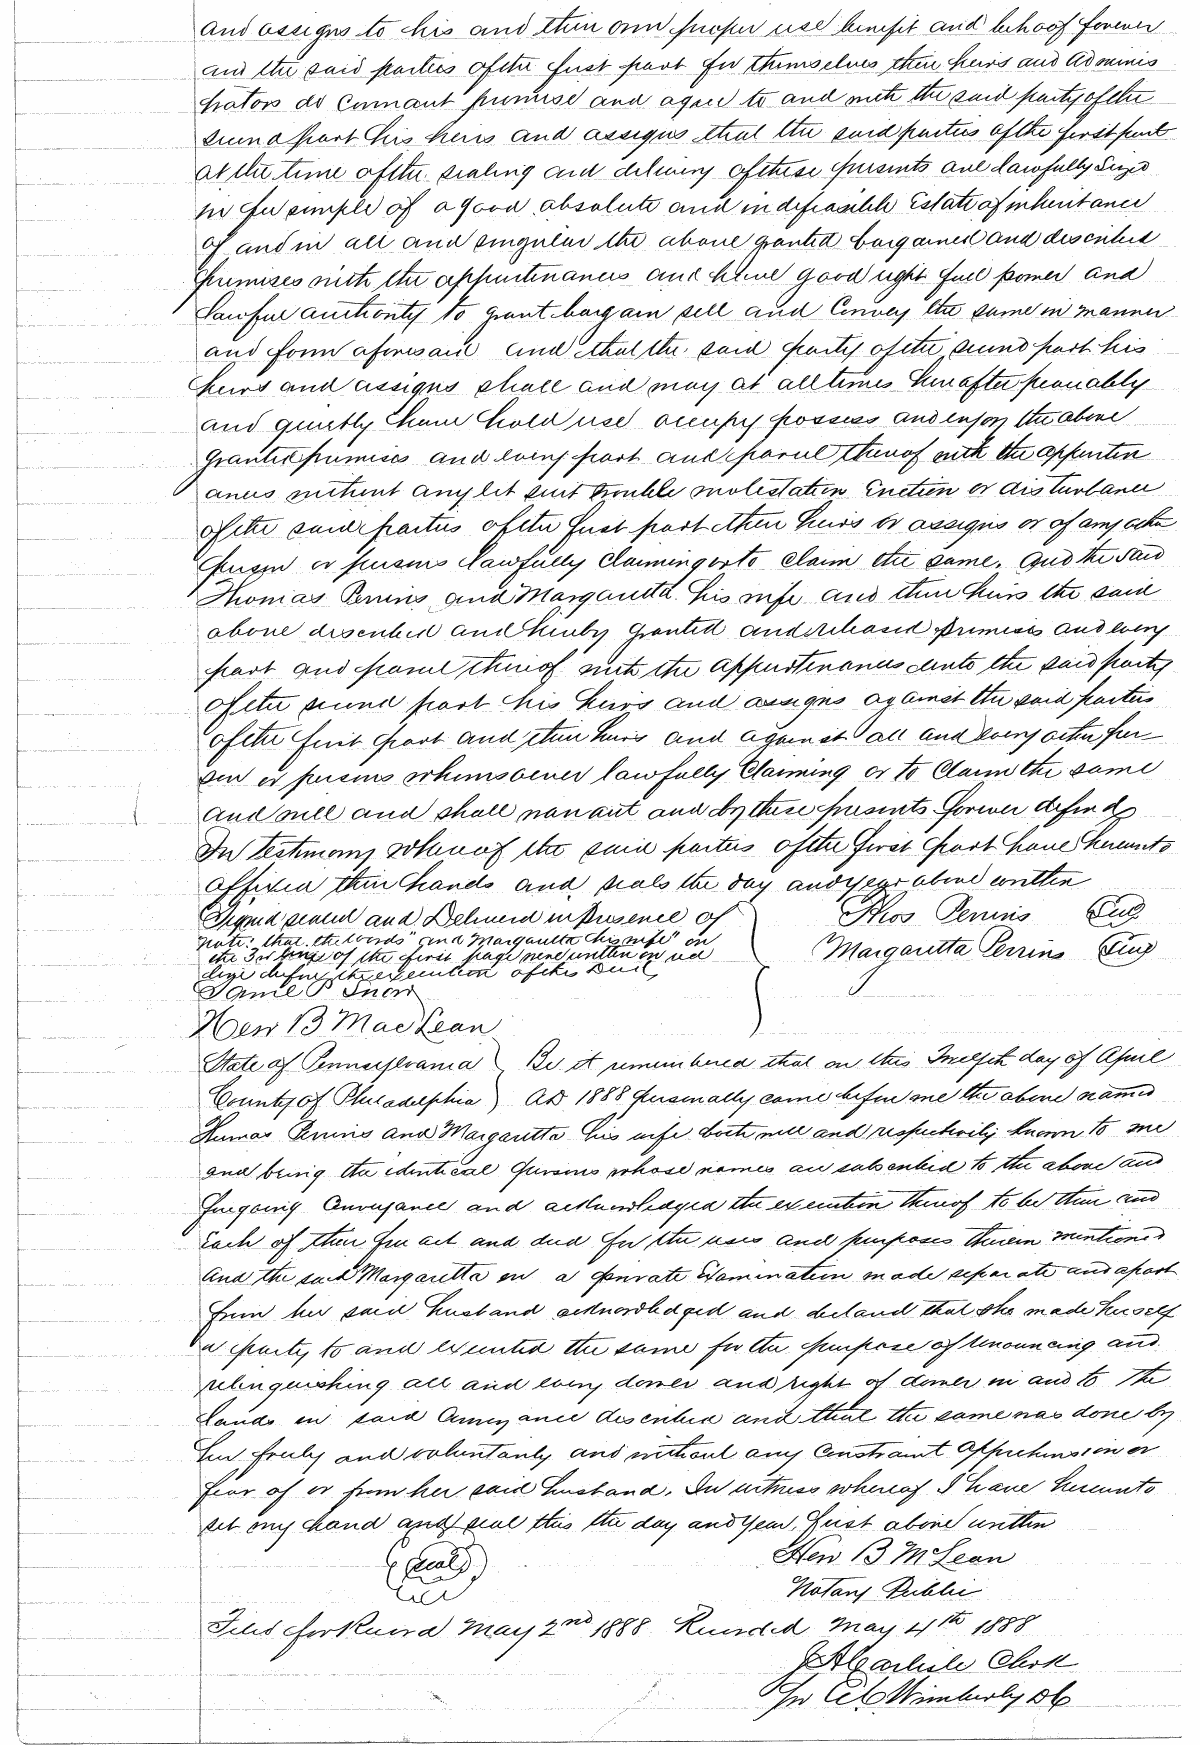 and assigns to his and their own proper use benefit and behoof forever
and the said parties of the first part for themselves their heirs and Adminis
trators do covenant promise and agree to and with the said party of the
second part his heirs and assigns that the said parties of the first part
at the time of the sealing and delivery of these presents are lawfully Seized
in fee simple of a good absolute and indefeasible Estate of inheritance
of and in all and singular the above granted bargained and described
premises with the appurtenances and have good right full power and
lawful authority to grant bargain sell and Convey the same in manner
and form aforesaid and that the said party of the second part his
heirs and assigns shall and may at all times hereafter peaceably
and quietly have hold use occupy possess and enjoy the above
granted premises and every part and parcel thereof with the appurten
ances without any let suit trouble molestation Eviction or disturbance
of the said parties of the first part their heirs or assigns or of any other
person or persons lawfully claiming or to claim the same. And the said
Thomas Perrins and Margaretta his wife and their heirs the said
above described and hereby granted and released premises and every
part and parcel thereof with the appurtenances unto the said party
of the second part his heirs and assigns against the said parties
of the first part and their heirs and against all and every other per
son or persons whomsoever lawfully Claiming or to Claim the same
and will and shall warrant and by these presents forever defend
In testimony whereof the said parties of the first part have hereunto
affixed their hands and seals the day and year above written
Signed sealed and Delivered in Presence of Thos Perrins Seal
note: that the words "and Margaretta his wife" on
the 3rd line of the first page were written on Margaretta Perrins Seal
before the execution of this Deed
Daniel P Snow
Hew B MacLean
State of Pennsylvania ) Be it remembered that on this Twelfth day of April
County of Philadelphia ) AD 1888 personally came before me the above named
Thomas Perrins and Margaretta his wife both well and respectively known to me
and being the identical persons whose names are subscribed to the above and
foregoing Conveyance and acknowledged the execution thereof to be their and
Each of their free act and deed for the uses and purposes therein mentioned
And the said Margaretta on a private Examination made separate and apart
from her said husband acknowledged and declared that she made herself
a party to and executed the same for the purpose of renouncing and
relinquishing all and every dower and right of dower in and to the
lands in said Conveyance described and that the same was done by
her freely and voluntarily and without any Constraint Apprehension or
fear of or from her said husband. In witness whereof I have hereunto
set my hand and seal this the day and year first above written
(Seal) Hew B McLean
Notary Public
Filed for Record May 2nd 1888 Recorded May 4th 1888
J A Carlisle Clerk
Per Wimberly DC